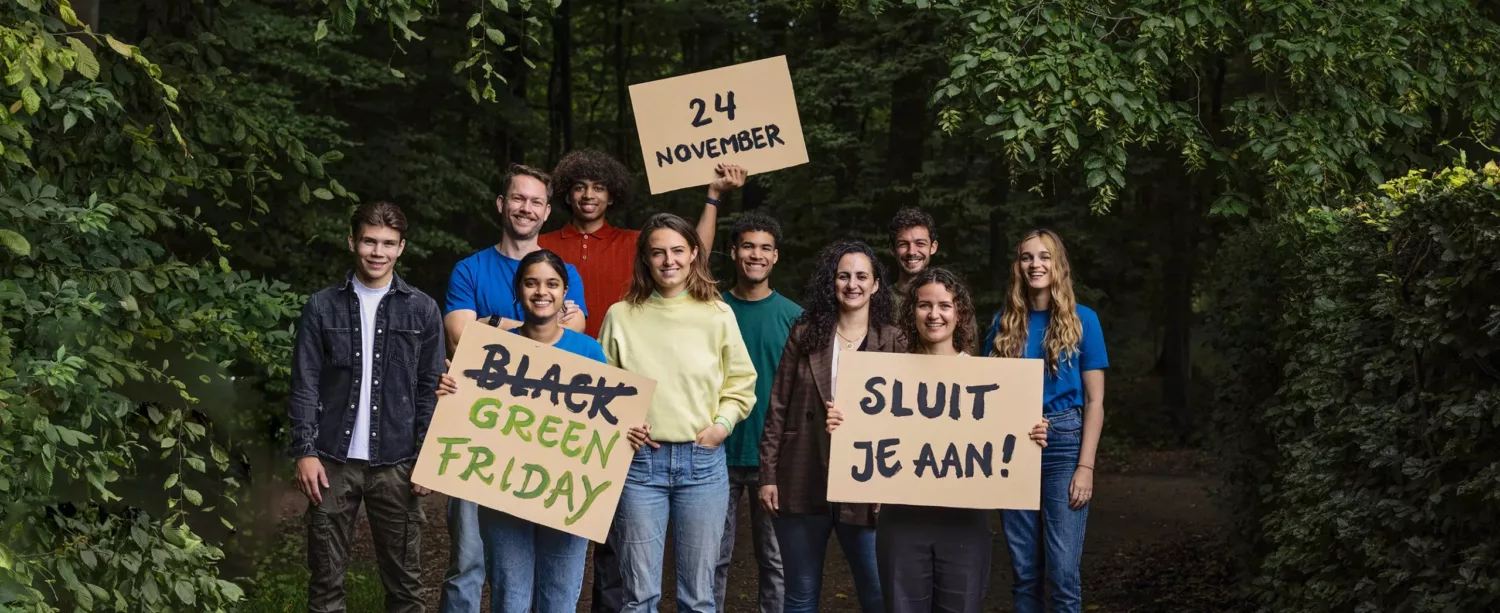 24
NOVEMBER
BLACK
GREEN
FRIDAY
SLUIT
JE AAN!